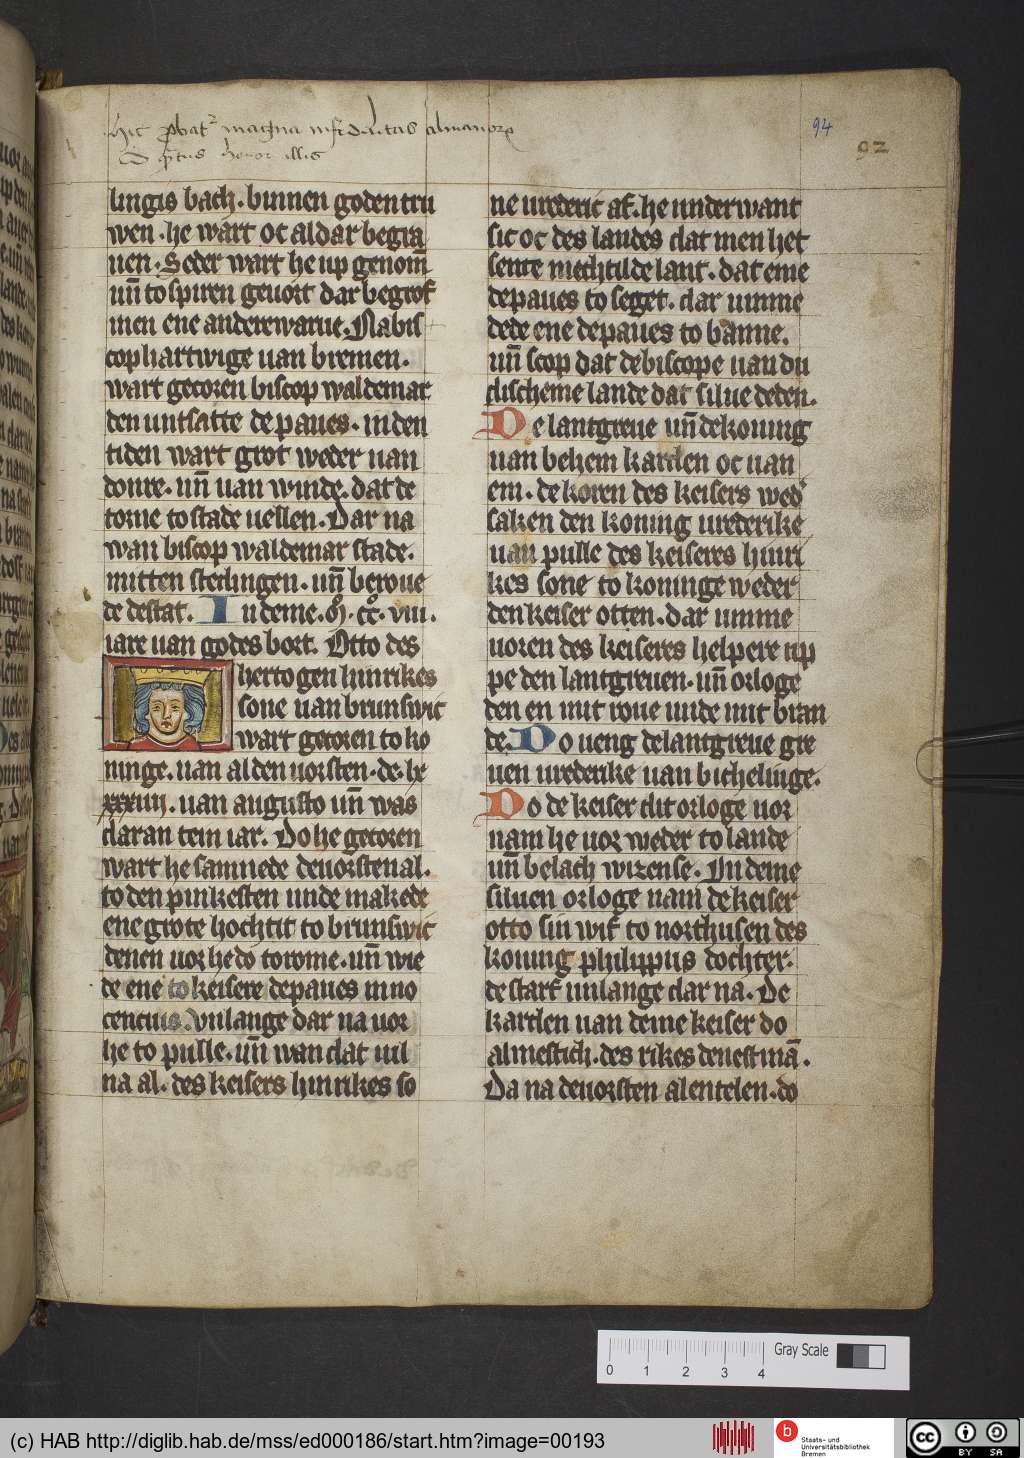 hic probat² magna infidelitas almanorꝝ
O qͣtus honor illis
94
92
lingis bach. binnen goden tru
wen. he wart oc aldar begra
uen. Seder wart he up genom̄
un̄ to spiren geuort dar begrof
men ene anderewarue. Nabis
cop hartwige uan bremen.
wart gecoren biscop waldemar
den untsatte de paues. in den
tiden wart grot weder uan
donre. un̄ uan winde. dat de
torne to stade uellen. Dar na
wan biscop waldemar stade.
mitten stedingen. un̄ beroue
de de stat. In deme. M̊. cc̊. viii.
iare uan godes bort. Otto des
hertogen hinrikes
sone uan brunswic
wart gecoren to ko
ninge. uan al den uorsten. de. lx
xxxiiii. uan augusto un̄ was
daran tein iar. Do he gecoren
wart he samnede de uorsten al.
to den pinkesten unde makede
ene grote hochtit to brunswic
denen uor he do to rome. un̄ wie
de ene to keisere de paues inno
cencius. Vnlange dar na uor
he to pulle. un̄ wan dat uil
na al. des keisers hinrikes so
ne urederic af. he underwant
sic oc des landes dat men het
sente mechtilde lant. dat eme
de paues to seget. dar umme
dede ene de paues to banne.
un̄ scop dat de biscope uan du
discheme lande dat silue deden.
De lantgreue un̄ de koning
uan behem karden oc uan
em. de koren des keisers wed̾
saken den koning urederike
uan pulle des keiseres hinri
kes sone to koninge weder
den keiser otten. dar umme
uoren des keiseres helpere up
pe den lantgreuen. un̄ orloge
den en mit roue unde mit bran
de. Do ueng de lantgreue gre
uen urederike uan bichelinge.
Do de keiser dit orloge uor
nam he uor weder to lande
un̄ belach wizense. In deme
siluen orloge nam de keiser
otto sin wif to northusen des
koning philippus dochter.
de starf unlange dar na. De
karden uan deme keiser do
almestich. des rikes denestmā.
Da na de uorsten alentelen. do
Gray Scale
0 1 2 3 4
(c) HAB http://diglib.hab.de/mss/ed000186/start.htm?image=00193
b
Staats- und
Universitätsbibliothek
Bremen
cc
BY SA